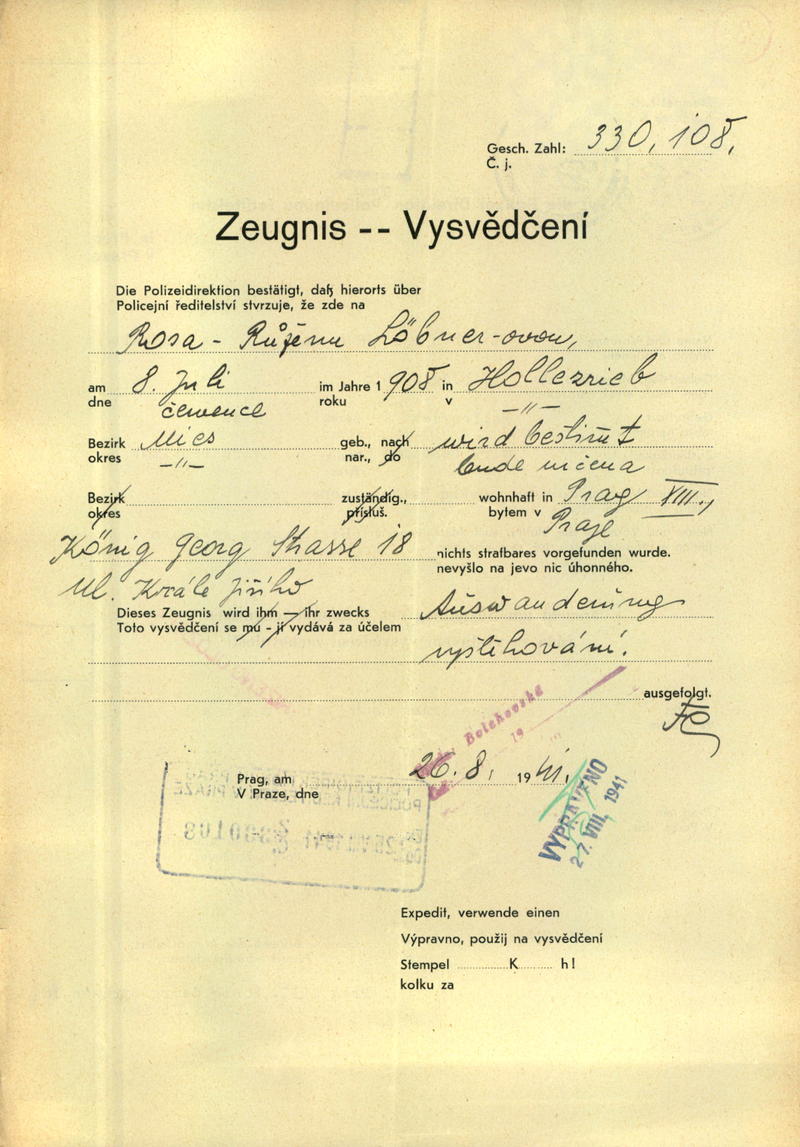 Gesch. Zahl: 330,108,
Č. j.
Zeugnis -- Vysvědčení
Die Polizeidirektion bestätigt, daß hierorts über
Policejní ředitelství stvrzuje, že zde na
Rosa - Růženu Löbner-ovou,
am 8. Juli im Jahre 1 908 in Hollezrieb
dne července roku v —〃—
Bezirk Mies geb., nach wird bestimt
okres —〃— nar., do bude určena
Bezirk zuständig., wohnhaft in Prag XIII.,
okres přísluš. bytem v Praze
König Georg Strasse 18 nichts strafbares vorgefunden wurde.
nevyšlo na jevo nic úhonného.
Ul. Krále Jiřího
Dieses Zeugnis wird ihm — ihr zwecks Auswanderung
Toto vysvědčení se mu - jí vydává za účelem
vystěhování.
ausgefolgt.
Prag, am 26. 8. 19 41.
V Praze, dne
VYPRAVENO
27. VIII. 1941
Expedit, verwende einen
Výpravno, použij na vysvědčení
Stempel K h!
kolku za